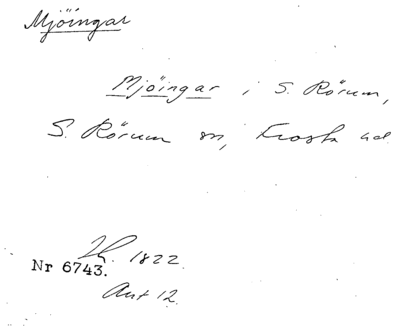 Mjöingar
Mjöingar i S. Rörum,
S. Rörum sn, Frosta hd
1822.
Nr 6743.
Ant 12.